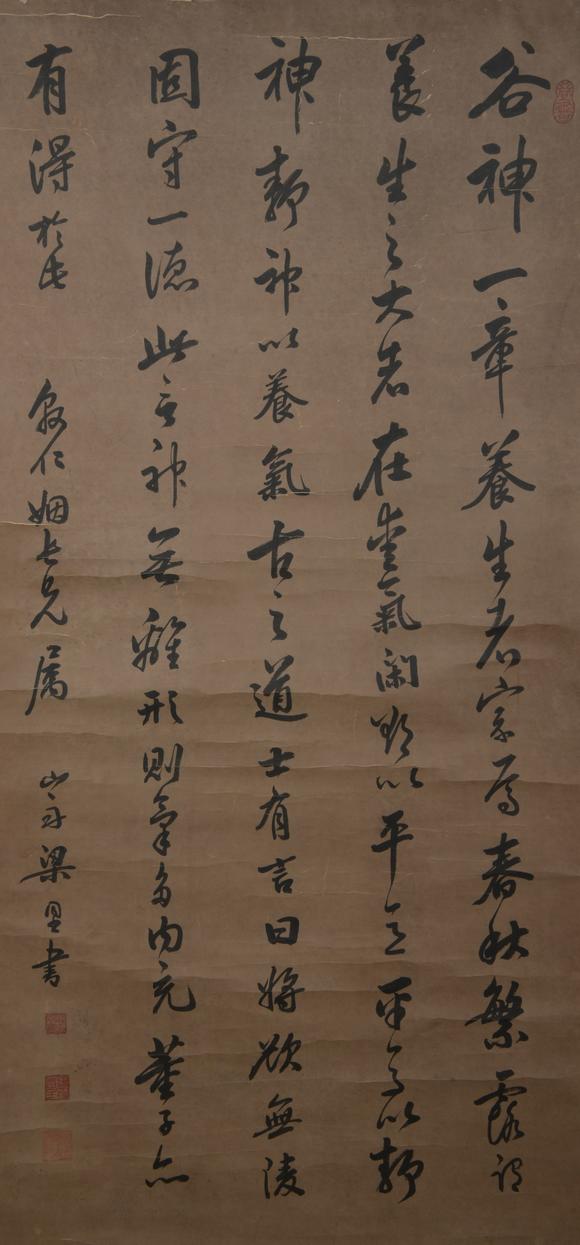 谷神一章養生者宗焉春秋繁露謂
養生之大者在愛氣閑欲以平意平意以靜
神靜神以養氣古之道士有言曰將欲無陵
固守一德此言神無離形則氣多內充董子亦
有得於此 仁姻長兄屬 山舟梁同書